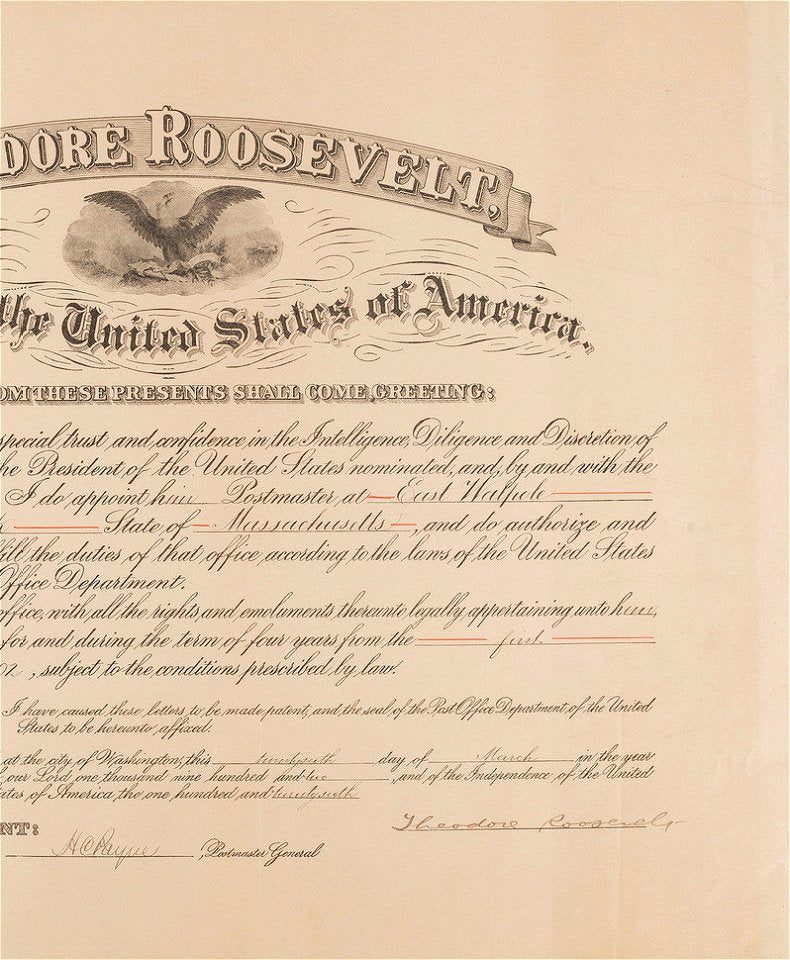 DORE ROOSEVELT,
the United States of America.
OM THESE PRESENTS SHALL COME, GREETING:
special trust and confidence in the Intelligence, Diligence and Discretion of
he President of the United States nominated, and, by and with the
I do appoint him Postmaster at East Walpole
State of Massachusetts, and do authorize and
fill the duties of that office according to the laws of the United States
Office Department.
office, with all the rights and emoluments thereunto legally appertaining unto him,
for and during the term of four years from the first
02, subject to the conditions prescribed by law.
I have caused these letters to be made patent, and the seal of the Post Office Department of the United
States to be hereunto affixed.
at the city of Washington, this twentysixth day of March in the year
our Lord one thousand nine hundred and two, and of the Independence of the United
ates of America the one hundred and twentysixth
Theodore Roosevelt
NT:
H C Payne, Postmaster General